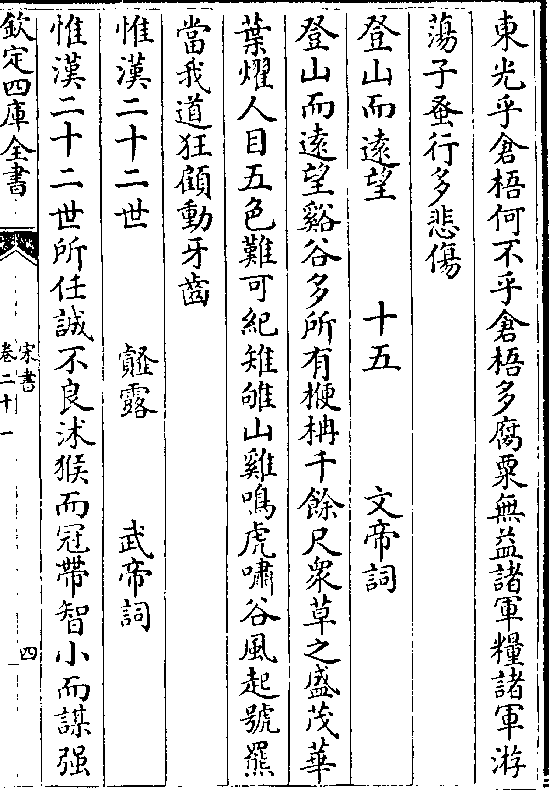 東光乎倉梧何不乎倉梧多腐粟無益諸軍糧諸軍游
蕩子蚤行多悲傷
登山而遠望　十五　文帝詞
登山而遠望谿谷多所有楩柟千餘尺衆草之盛茂華
葉燿人目五色難可紀雉雊山雞鳴虎嘯谷風起號羆
當我道狂顧動牙齒
惟漢二十二世　薤露　武帝詞
惟漢二十二世所任誠不良沭猴而冠帶智小而謀强
欽定四庫全書
宋書
卷二十一
四